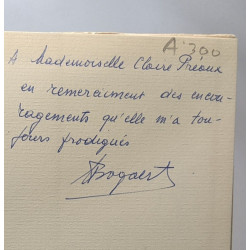 A' 300
A Mademoiselle Claire Préaux
en remerciment des encou-
ragements qu'elle m'a tou-
jours prodigués
Bogaert